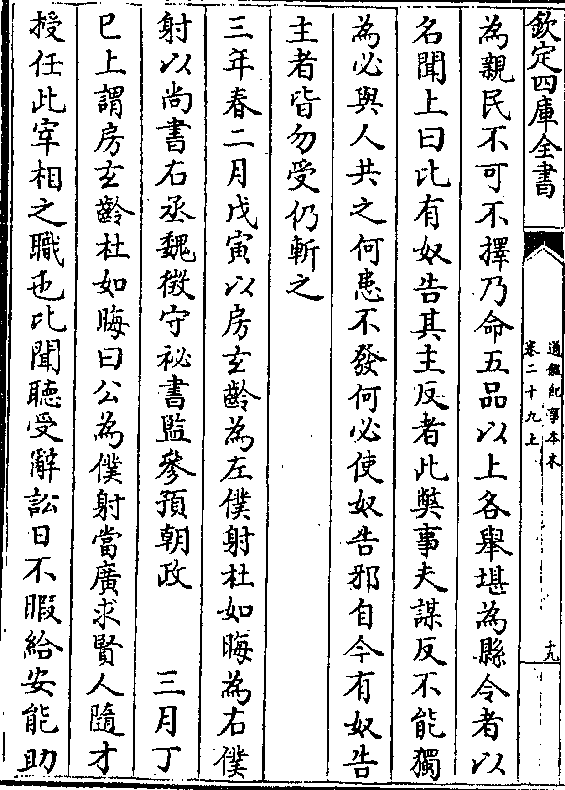 欽定四庫全書
通鑑紀事本末
卷二十九上
十九
為親民不可不擇乃命五品以上各舉堪為縣令者以
名聞上曰比有奴告其主反者此獘事夫謀反不能獨
為必與人共之何患不發何必使奴告邪自今有奴告
主者皆勿受仍斬之
三年春二月戊寅以房玄齡為左僕射杜如晦為右僕
射以尚書右丞魏徵守祕書監參預朝政　三月丁
巳上謂房玄齡杜如晦曰公為僕射當廣求賢人隨才
授任此宰相之職也比聞聽受辭訟日不暇給安能助